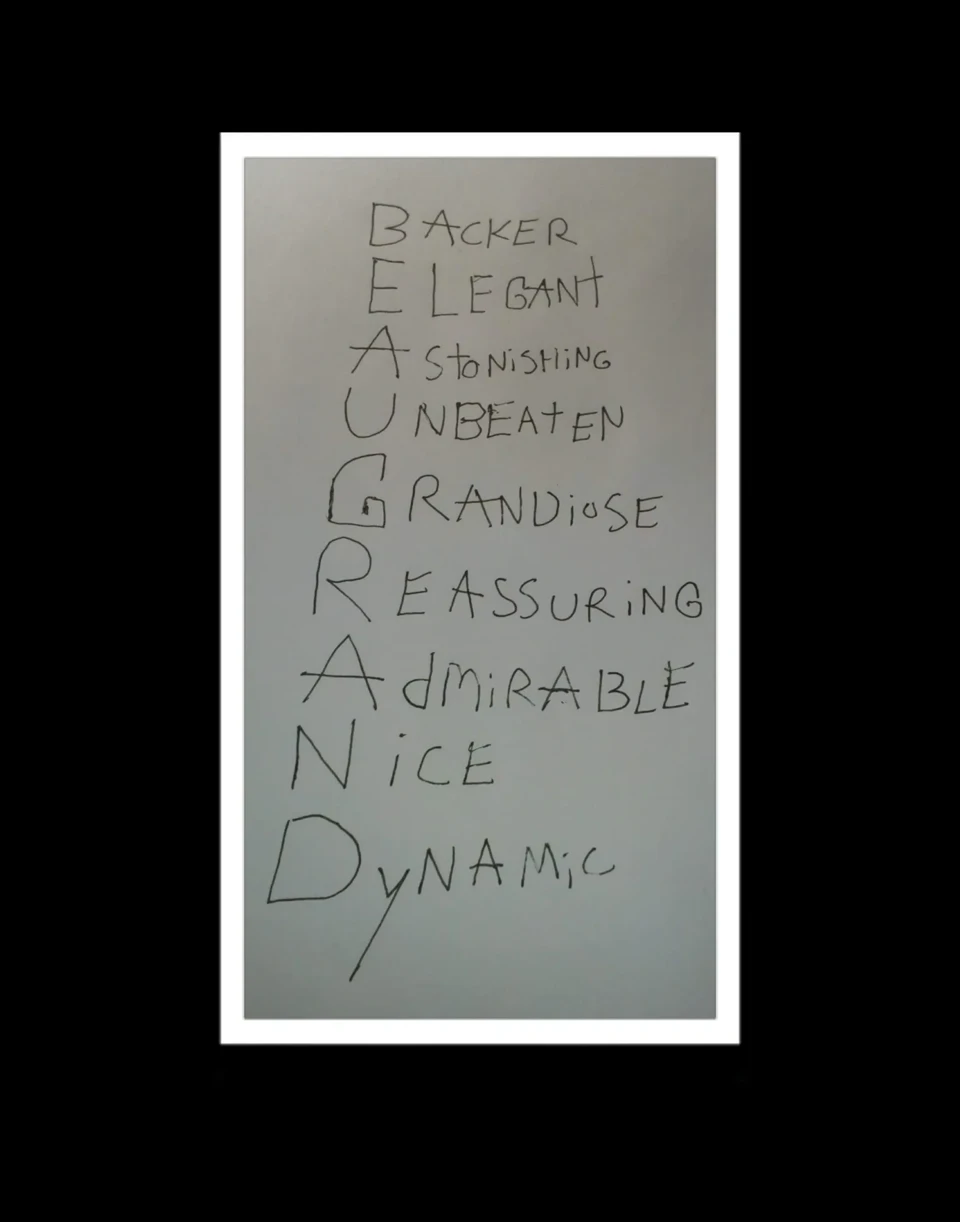 BACKER
ELEGANt
AStoNiSHiNG
UNBEAtEN
GRANDiOSE
REASSURiNG
AdMiRABLE
NiCE
DyNAMiC